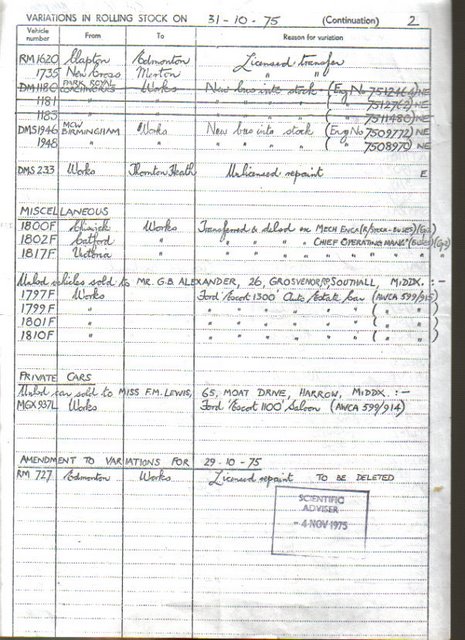 VARIATIONS IN ROLLING STOCK ON 31-10-75 (Continuation) 2
Vehicle number From To Reason for variation
RM1620 Clapton Edmonton Licensed transfer
1735 New Cross Merton " "
DM1180 PARK ROYAL Works New bus into stock (Eng No 7512464) NE
1181 " " " " " " ( " 7512762) NE
1183 " " " " " " ( " 7511480) NE
DMS1946 MCW BIRMINGHAM Works New bus into stock (Eng No 7509772) NE
1948 " " " " " " ( " 7508970) NE
DMS 233 Works Thornton Heath Unlicensed repaint E
MISCELLANEOUS
1800F Chiswick Works Transferred & delscd on MECH ENGR (R/STOCK-BUSES)
1802F Catford " " " " CHIEF OPERATING MANGR (BUSES)
1817F Victoria " " " " " " "
Unlscd vehicles sold to MR. G.B. ALEXANDER, 26, GROSVENOR RD, SOUTHALL, MIDDX. :-
1797F Works Ford 'Escort 1300' Auto/Estate Car (AWCA 599/915)
1799F " " " " " " ( " " )
1801F " " " " " " ( " " )
1810F " " " " " " ( " " )
PRIVATE CARS
Unlscd car sold to MISS F.M. LEWIS, 65, MOAT DRIVE, HARROW, MIDDX. :-
MGX 937L Works Ford 'Escort 1100' Saloon (AWCA 599/914)
AMENDMENT TO VARIATIONS FOR 29-10-75
RM 727 Edmonton Works Licensed repaint TO BE DELETED
SCIENTIFIC
ADVISER
- 4 NOV 1975